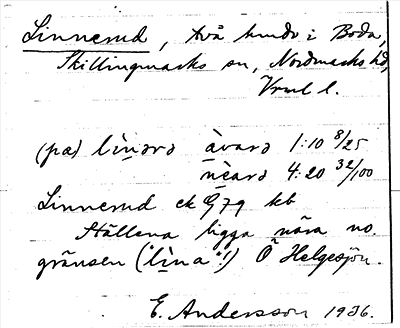 Linnerud, två hmdr i Boda,
Skillingmarks sn, Nordmarks hd,
Vrml l.
(pα) lìnərə àvarə 1:10 8/25
nèarə 4:20 32/100
Linnerud ek G 79 kb
Ställena ligga nära no.
gränsen ("lìna"!) Ö Helgesjön.
E. Andersson 1936.